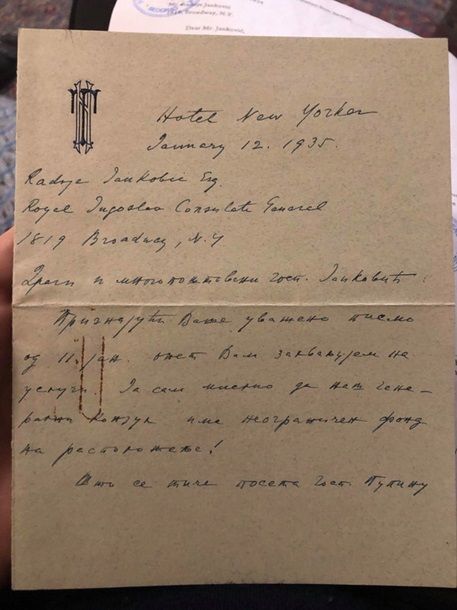 Mr. Radoje Jankovic
Broadway, N.Y.
Dear Mr. Jankovic,
Hotel New Yorker
January 12. 1935.
Radoje Jankovic Esq.
Royal Jugoslav Consulate General
1819 Broadway, N.Y
Драги и многопоштовани госп. Јанковић:
Признајући Ваше уважено писмо
од 11. јан. опет Вам захваљујем на
услузи. Ја сам мислио да наш гене-
рални конзул има неограничен фонд
на расположење!
Што се тиче посета госп. Пупину